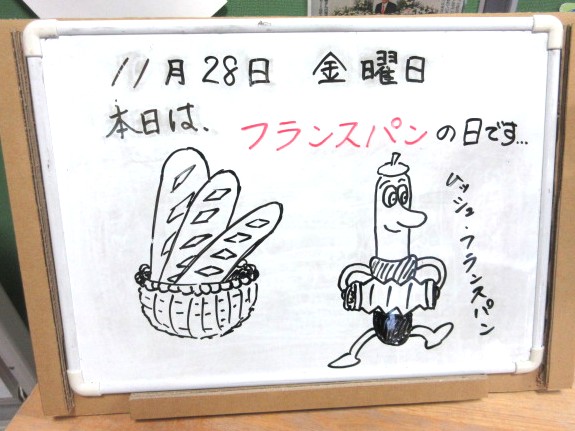 11月28日 金曜日
本日は、フランスパンの日です...
ムッシュ・フランスパン